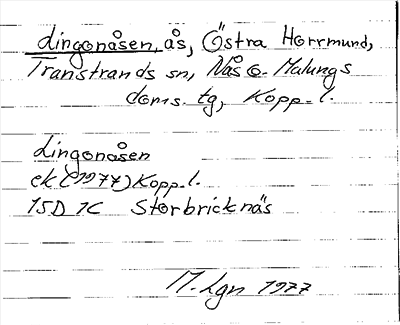 Lingonåsen, ås, Östra Horrmund,
Transtrands sn, Nås o. Malungs
doms. tg, Kopp. l.
Lingonåsen
ek. (1977) Kopp. l.
15D 1C Storbricknäs
M. Lgn 1977